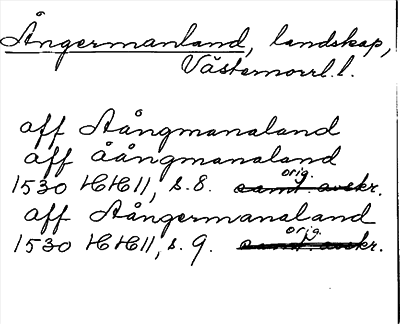 Ångermanland, landskap,
Västernorrl.l.
aff Aångmanaland
aff åångmanaland
orig.
1530 HH 11, s. 8. samt. avskr.
aff Aångermanaland
orig.
1530 HH 11, s. 9. samt. avskr.